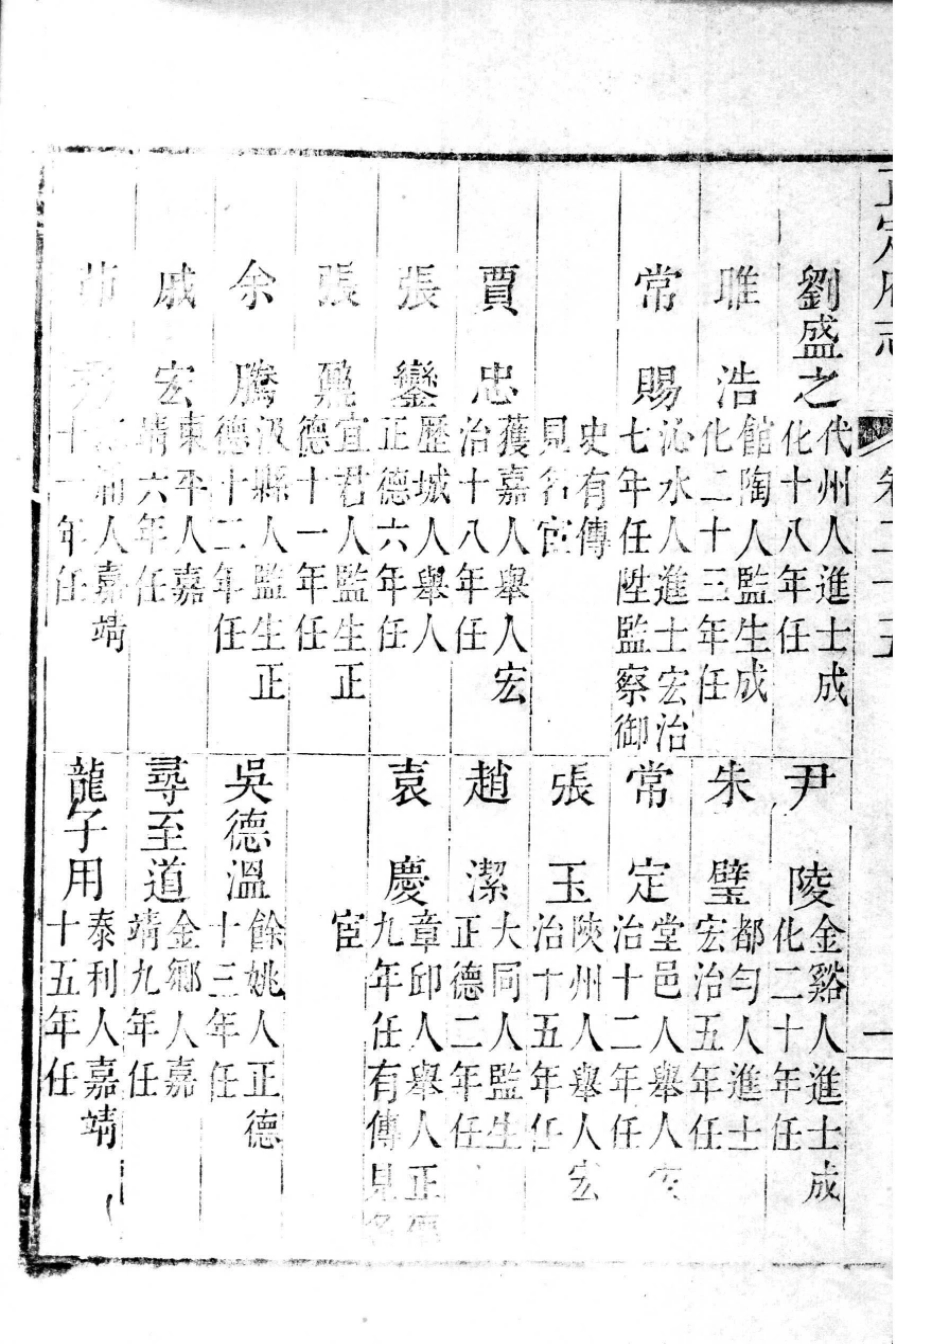 正定府志
卷二十五
一
劉盛之
代州人進士成
化十八年任
尹陵
金谿人進士成
化二十年任
睢浩
館陶人監生成
化二十三年任
朱璧
都勻人進士
宏治五年任
常賜
沁水人進士宏治
七年任陞監察御
史有傳
見名宦
常定
堂邑人舉人宏
治十二年任
張玉
陝州人舉人宏
治十五年任
賈忠
獲嘉人舉人宏
治十八年任
趙潔
大同人監生
正德二年任
張鑾
歷城人舉人
正德六年任
袁慶
章邱人舉人正德
九年任有傳見名
宦
張鼐
宜君人監生正
德十一年任
余騰
汲縣人監生正
德十二年任
吳德溫
餘姚人正德
十三年任
戚宏
東平人嘉
靖六年任
尋至道
金鄉人嘉
靖九年任
人嘉靖
十一年任
龍子用
泰利人嘉靖
十五年任